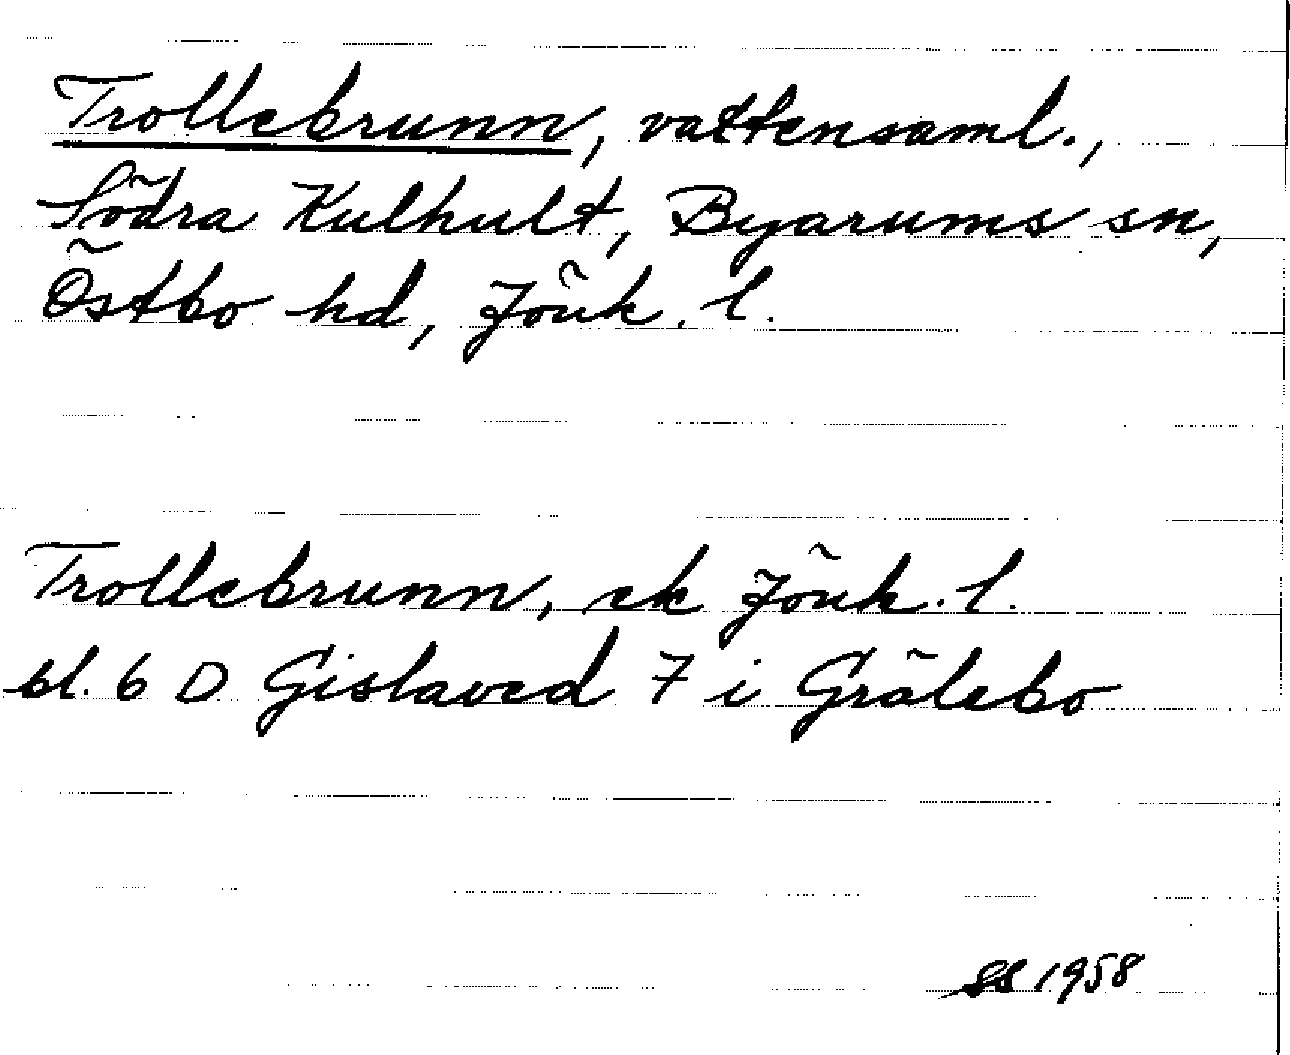 Trollebrunn, vattensaml.,
Södra Kulhult, Byarums sn,
Östbo hd, Jönk. l.
Trollebrunn, ek Jönk. l.
bl. 6 D Gislaved 7 i Grälebo
SS 1958